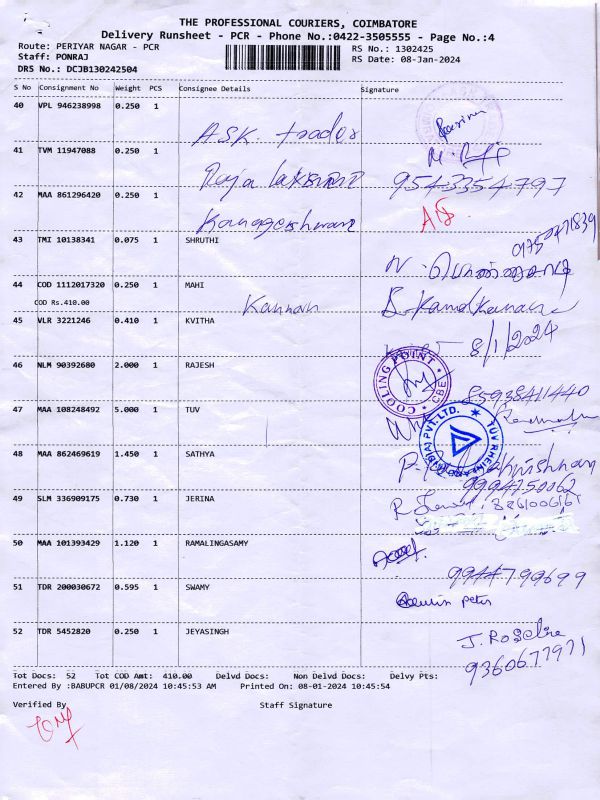 THE PROFESSIONAL COURIERS, COIMBATORE
Delivery Runsheet - PCR - Phone No.:0422-3505555 - Page No.:4
Route: PERIYAR NAGAR - PCR RS No.: 1302425
Staff: PONRAJ RS Date: 08-Jan-2024
DRS No.: DCJB130242504
S No Consignment No Weight PCS Consignee Details Signature
40 VPL 946238998 0.250 1
ASK. traders
41 TVM 11947088 0.250 1
Raja lakshmi 9543354797
42 MAA 861296420 0.250 1
Kanageshwari
43 TMI 10138341 0.075 1 SHRUTHI
44 COD 1112017320 0.250 1 MAHI
COD Rs.410.00 Kannan
45 VLR 3221246 0.410 1 KVITHA
8/1/2024
46 NLM 90392680 2.000 1 RAJESH COOLING POINT CBE
8593841440
47 MAA 108248492 5.000 1 TUV
48 MAA 862469619 1.450 1 SATHYA
9994750062
49 SLM 336909175 0.730 1 JERINA
50 MAA 101393429 1.120 1 RAMALINGASAMY
9944799699
51 TDR 200030672 0.595 1 SWAMY
52 TDR 5452820 0.250 1 JEYASINGH J. Roseline
9360677971
Tot Docs: 52 Tot COD Amt: 410.00 Delvd Docs: Non Delvd Docs: Delvy Pts:
Entered By :BABUPCR 01/08/2024 10:45:53 AM Printed On: 08-01-2024 10:45:54
Verified By Staff Signature